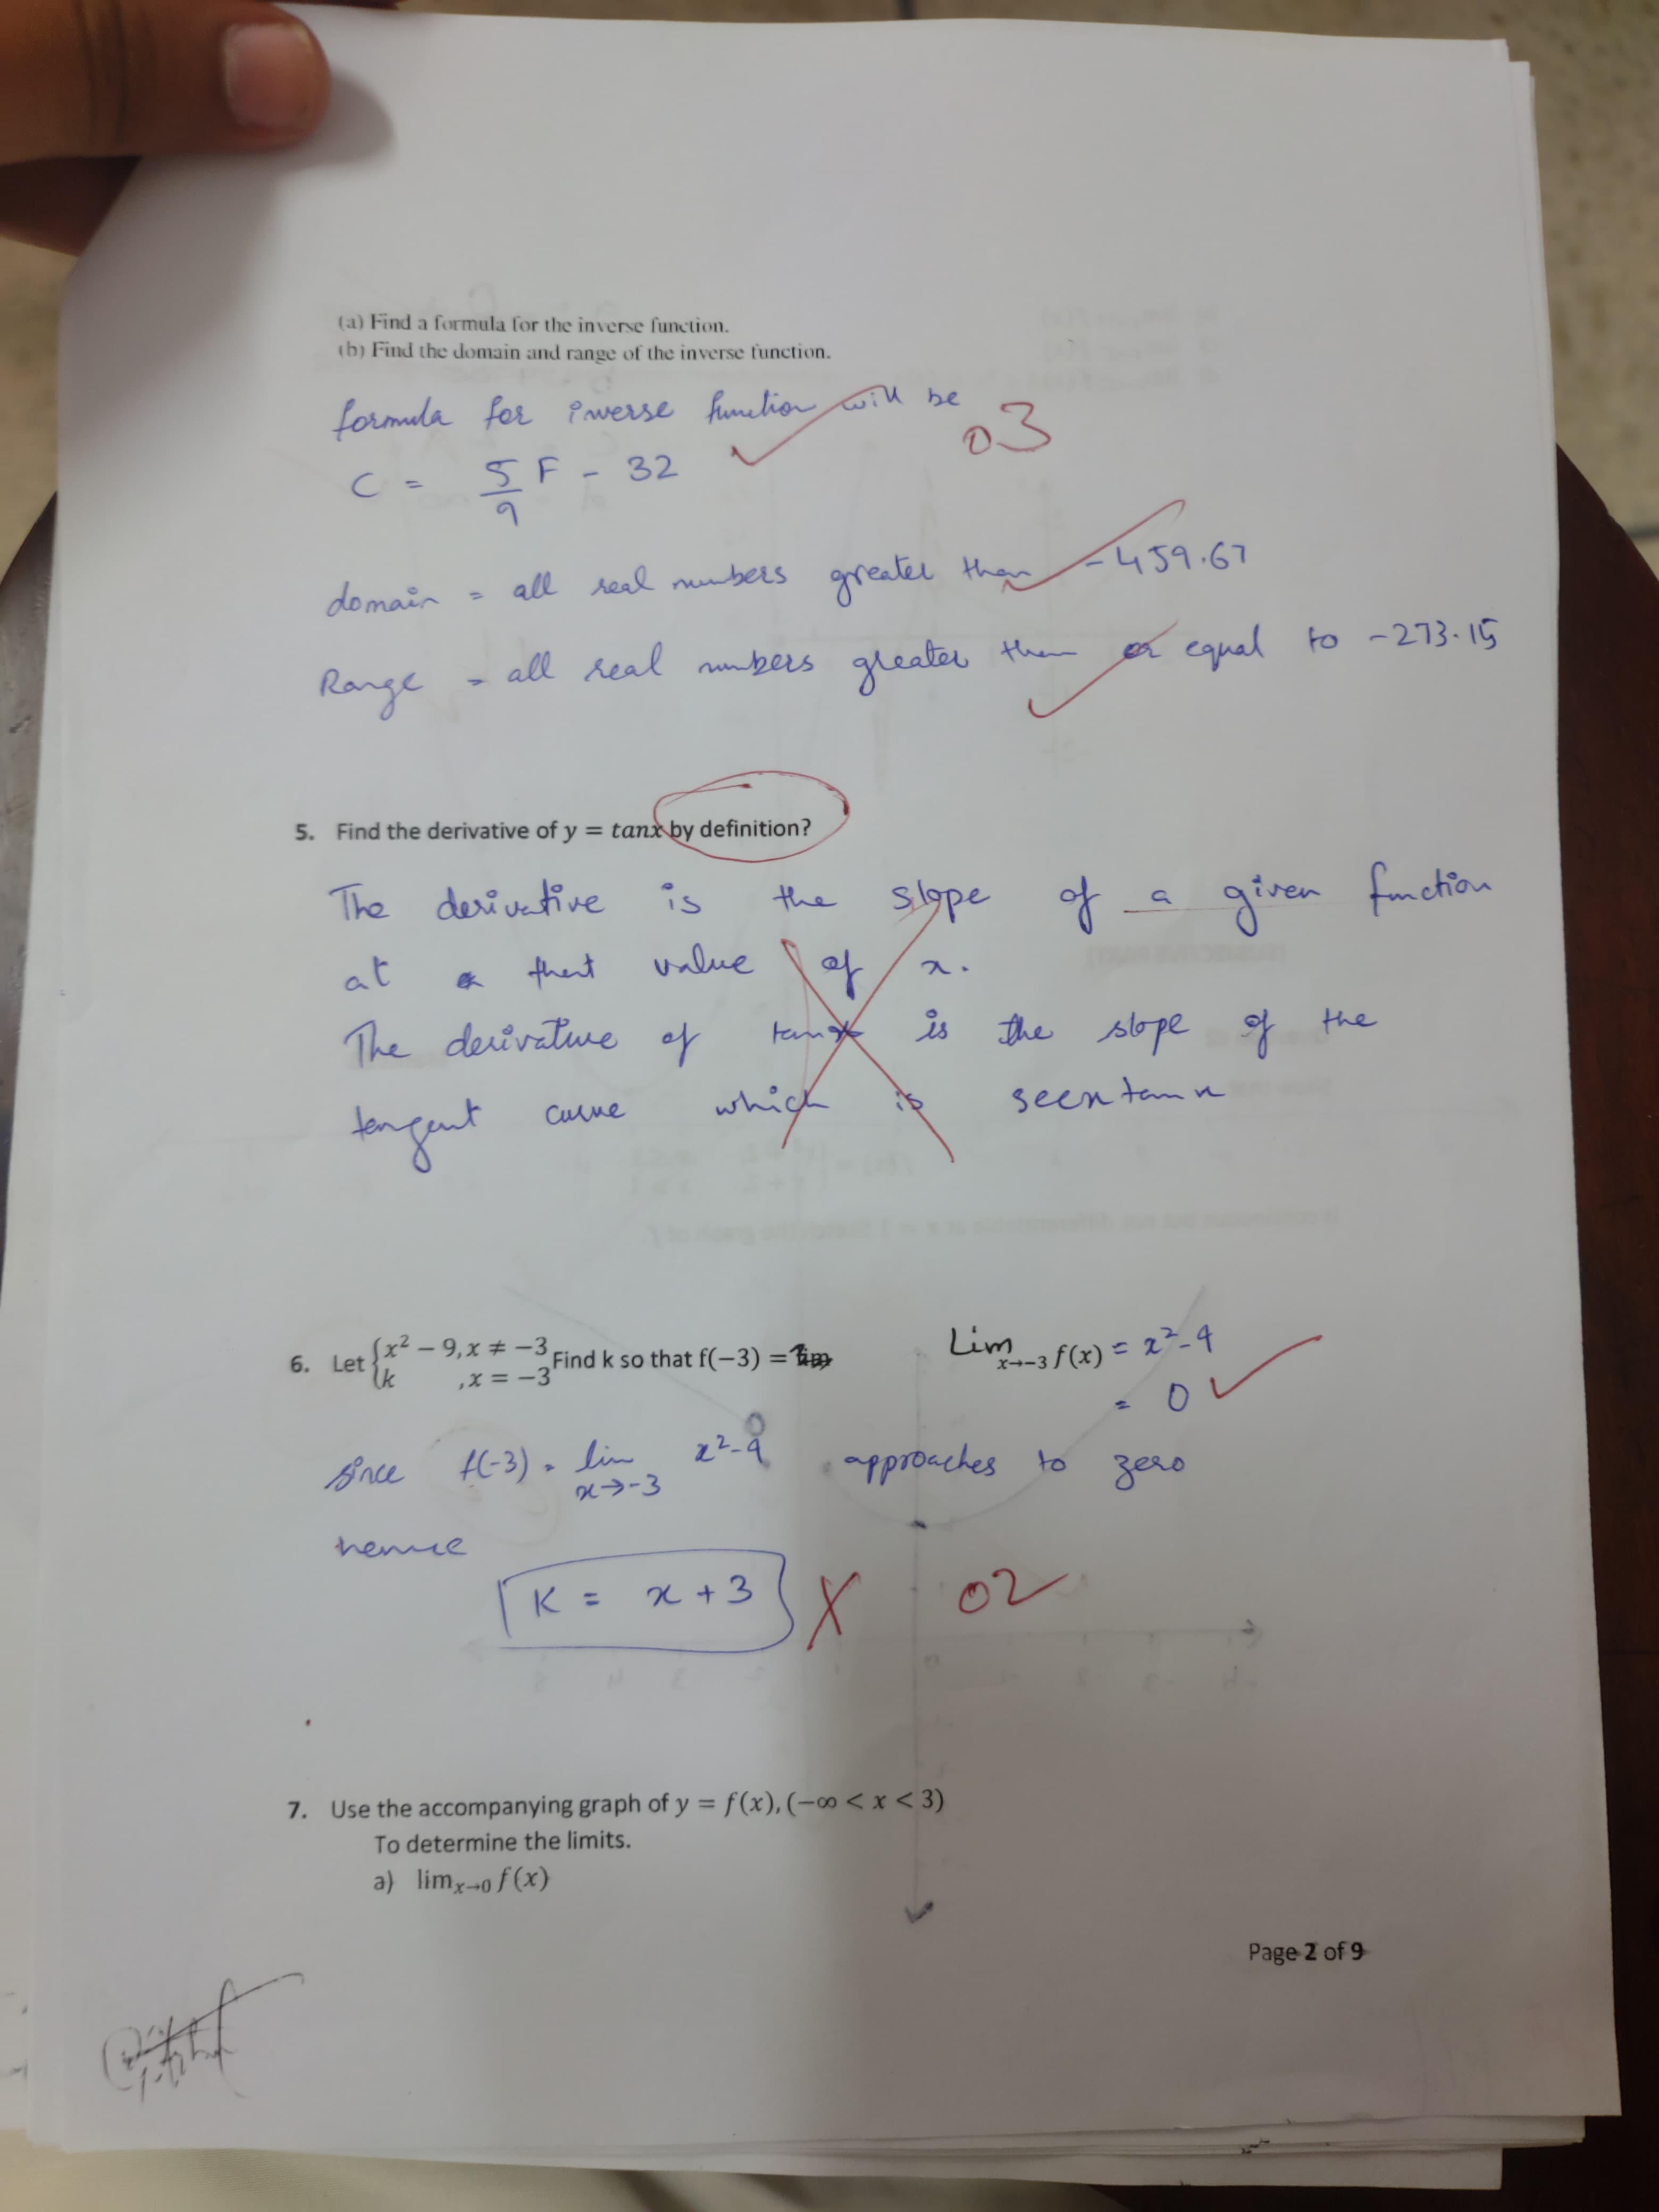 (a) Find a formula for the inverse function.
(b) Find the domain and range of the inverse function.
formula for inverse function will be
03
C = 5/9 F - 32
domain = all real numbers greater than -459.67
Range = all real numbers greater than or equal to -273.15
5. Find the derivative of y = tanx by definition?
The derivative is the slope of a given function
at that value of x.
The derivative of tanx is the slope of the
tangent curve which is secxtanx
6. Let {x² − 9, x ≠ −3
k , x = −3 Find k so that f(−3) =
Lim x→−3 f(x) = x²-9
= 0
since f(-3) = lim x→-3 x²-9 approaches to zero
hence
K = x + 3
02
7. Use the accompanying graph of y = f(x), (−∞ < x < 3)
To determine the limits.
a) lim x→0 f(x)
Page 2 of 9